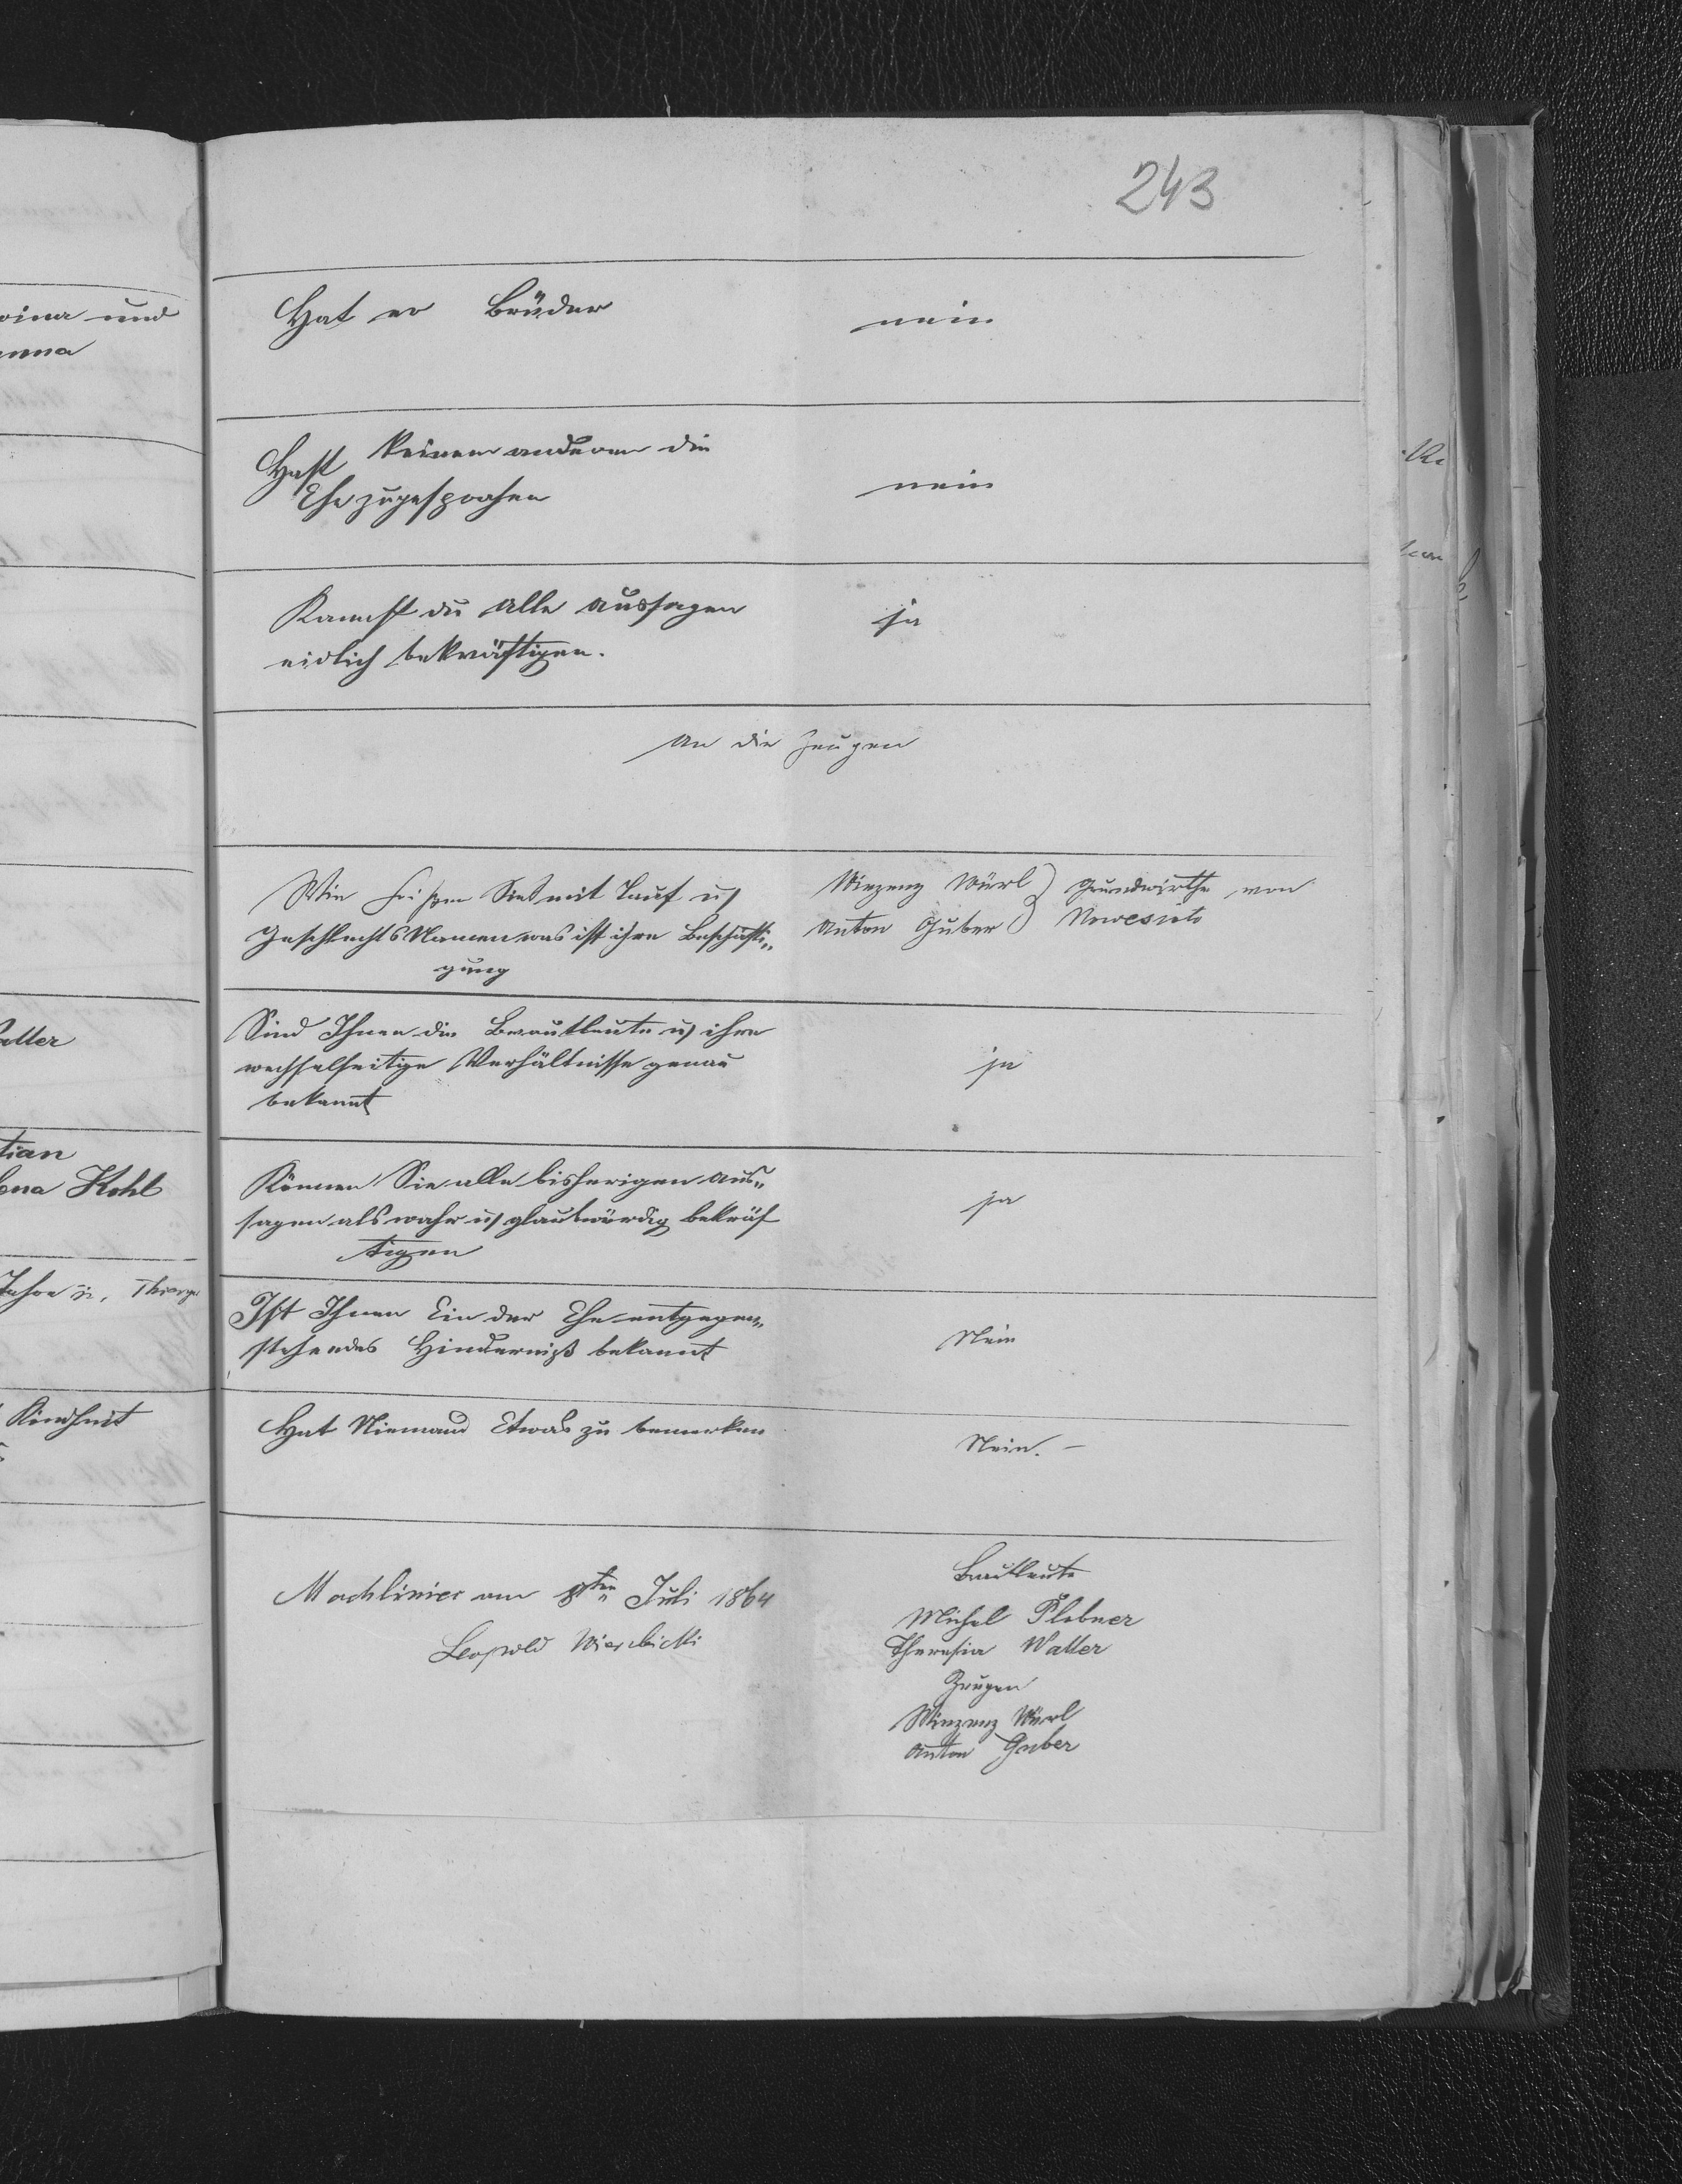 243
Hat er Brüder
nein
Hast keinem anderen die
Ehe zugesprochen
nein
Kannst du alle aussagen
eidlich bekräftigen.
ja
An die Zeugen
Wie heißen Sie mit Tauf u/
Geschlechts Namen was ist ihre Beschäfti„
gung
Vinzenz Würl
Anton Guber
Grundwirthe von
Nowesioło
Sind Ihnen die Brautleute u/ ihre
wechselseitige Verhältnisse genau
bekannt
ja
Können Sie alle bisherigen aus„
sagen als wahr u/ glaubwürdig bekräf
tigen
ja
Ist Ihnen Ein der Ehe entgegen„
stehendes Hinderniß bekannt
Nein
Hat Niemand Etwas zu bemerken
Nein. –
Machliniec am 8ten Juli 1864
Leopold Wierzbicki
Brautleute
Michel Plobner
Theresia Walter
Zeugen
Vinzenz Würl
Anton Guber
und
anna
alter
tian
lena Kohl
Jahre
Kindheit